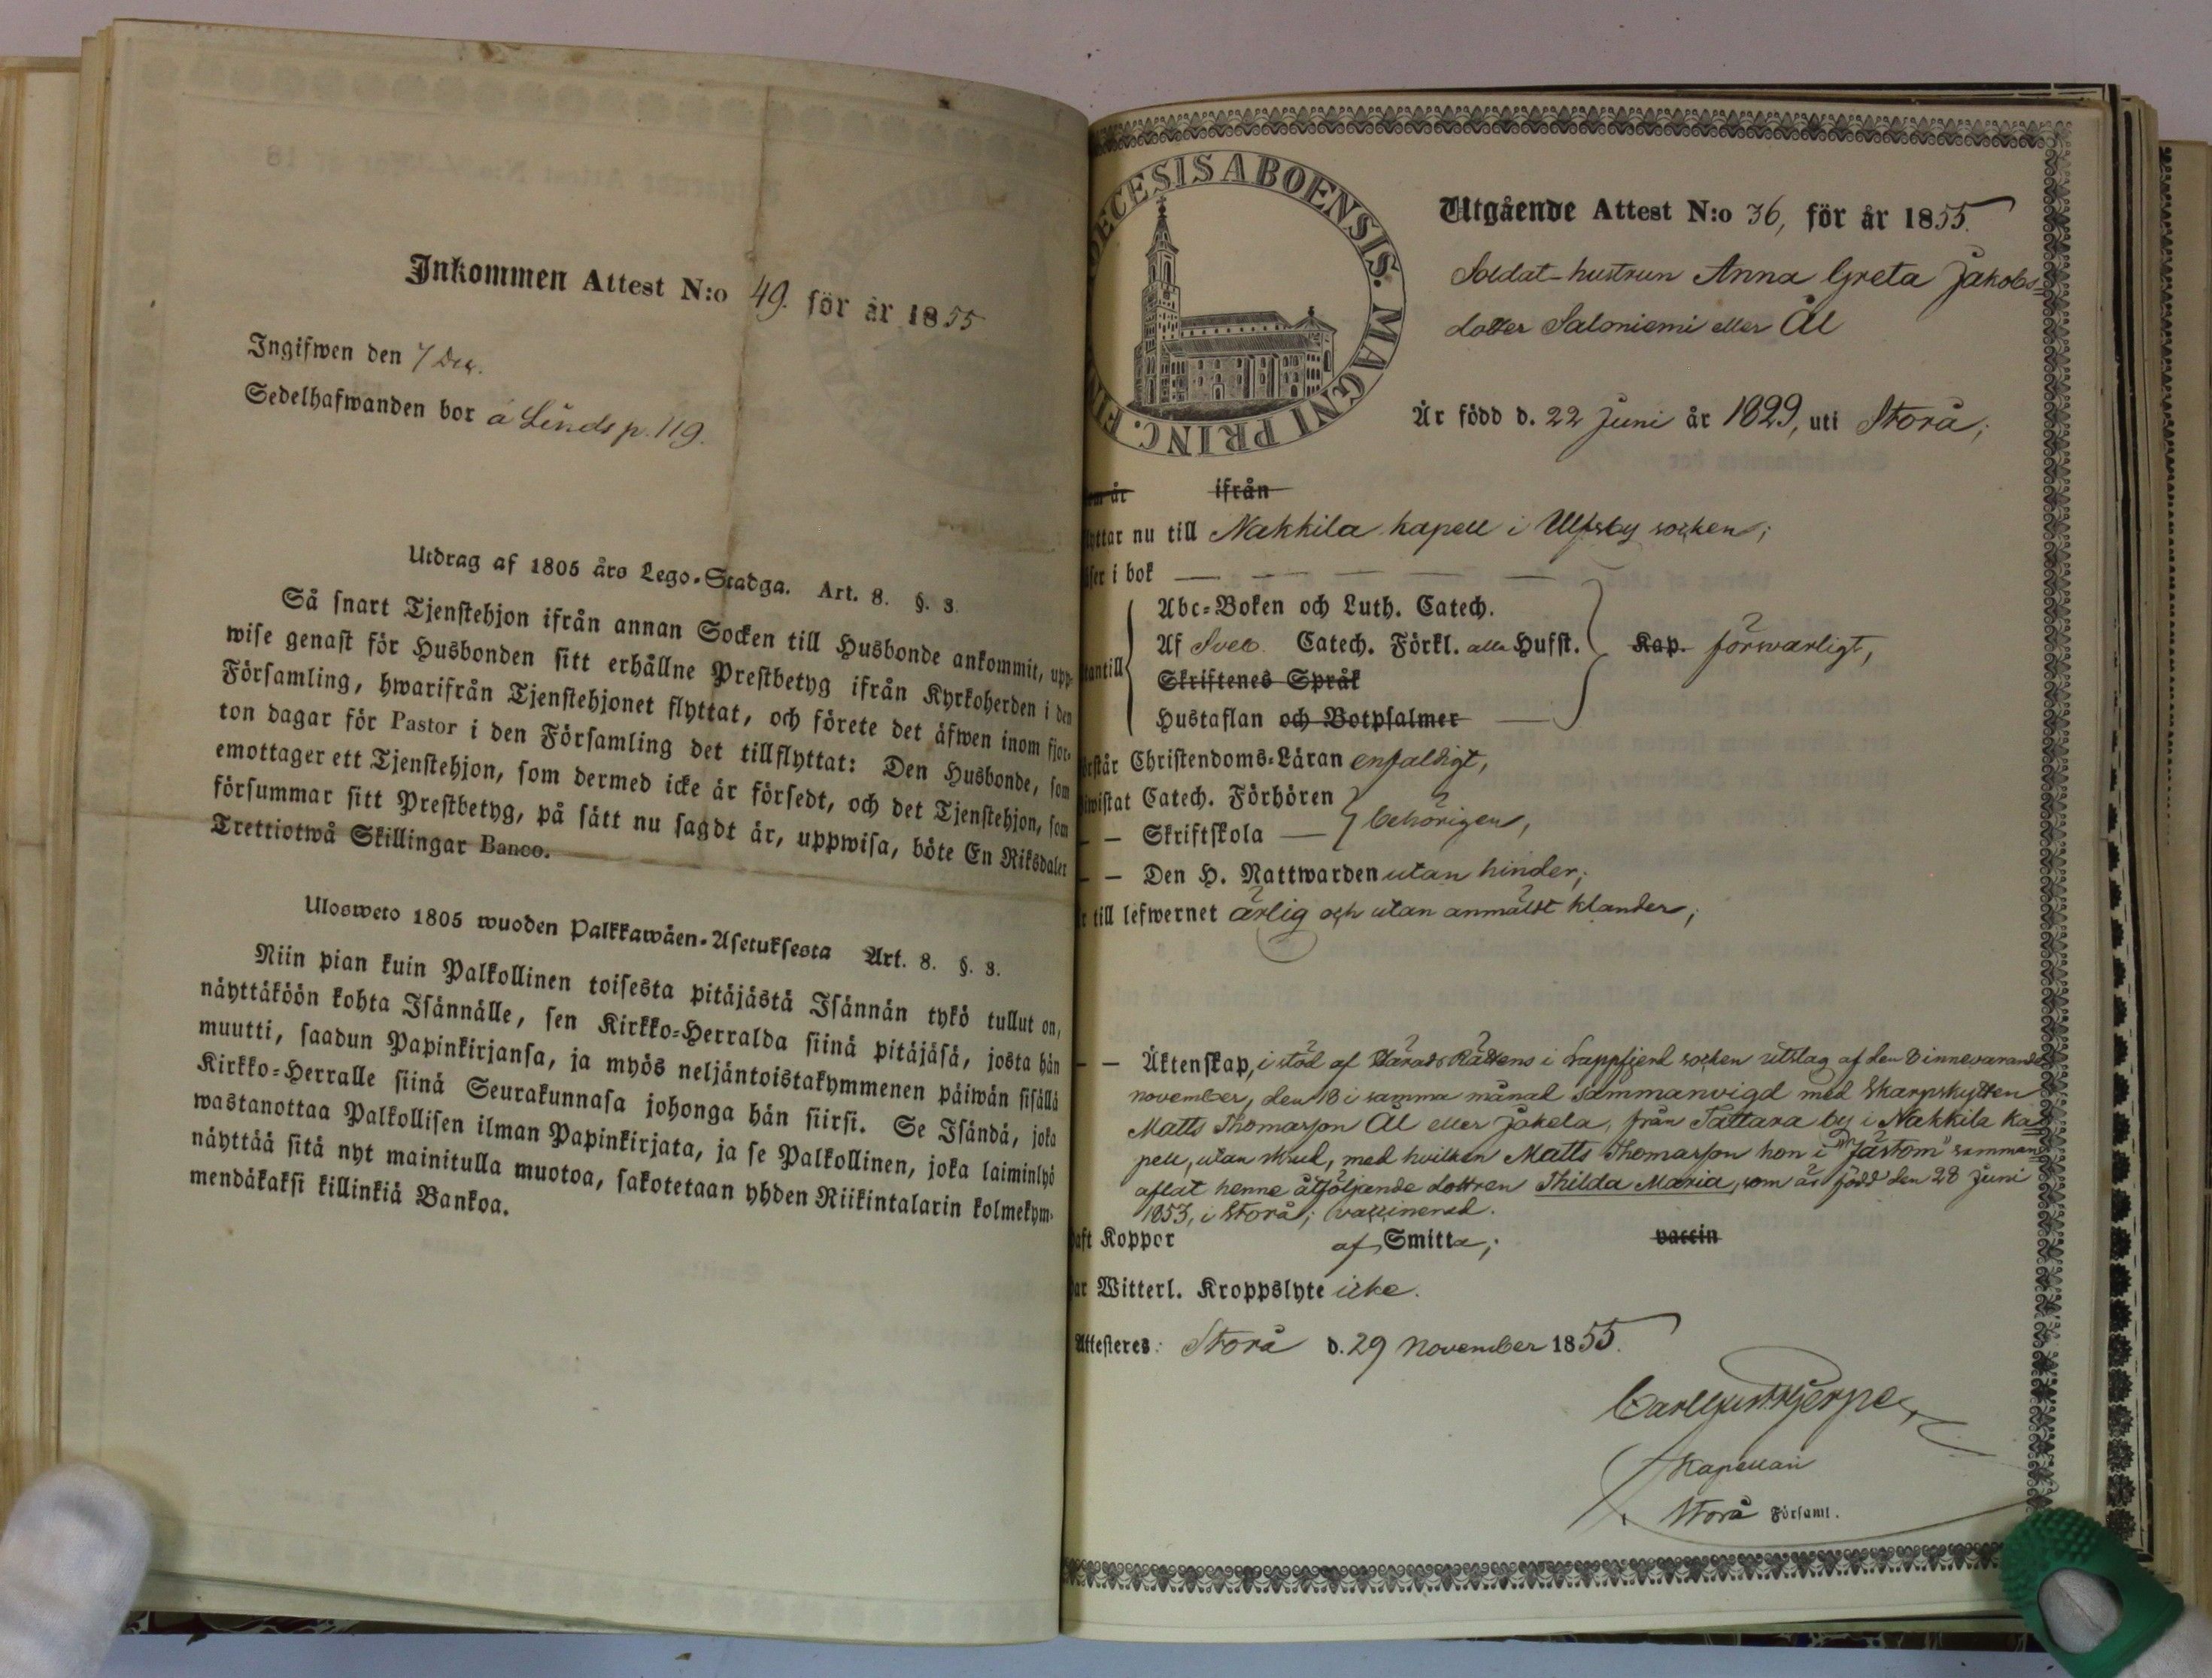 Inkommen Attest N:o 49. för år 1855
Ingifwen den 7 Dec.
Sedelhafwanden bor å Linds p. 119.
Utdrag af 1805 års Lego-Stadga. Art. 8. §. 3.
Så snart Tjenstehjon ifrån annan Socken till Husbonde ankommit, upp-
wise genast för Husbonden sitt erhållne Prestbetyg ifrån Kyrkoherden i den
Församling, hwarifrån Tjenstehjonet flyttat, och förete det äfwen inom fjor-
ton dagar för Pastor i den Församling det tillflyttat: Den Husbonde, som
emottager ett Tjenstehjon, som dermed icke är försedt, och det Tjenstehjon, som
försummar sitt Prestbetyg, på sätt nu sagdt är, uppwisa, böte En Riksdaler
Trettiotwå Skillingar Banco.
Ulosweto 1805 wuoden Palkkawäen-Asetuksesta Art. 8. §. 3.
Niin pian kuin Palkollinen toisesta pitäjästä Isännän tykö tullut on,
näyttäköön kohta Isännälle, sen Kirkko-Herralda siinä pitäjäsä, josta hän
muutti, saadun Papinkirjansa, ja myös neljäntoistakymmenen päiwän sisällä
Kirkko-Herralle siinä Seurakunnasa johonga hän siirsi. Se Isändä, joka
wastanottaa Palkollisen ilman Papinkirjata, ja se Palkollinen, joka laiminlyö
näyttää sitä nyt mainitulla muotoa, sakotetaan yhden Riikintalarin kolmekym-
mendäkaksi killinkiä Bankoa.
DECESIS ABOENSIS. MAGNI PRINC. FIN
Utgående Attest N:o 36, för år 1855.
Soldat-hustrun Anna Greta Jakobs=
dotter Saloniemi eller Ål
Är född d. 22 Juni år 1829, uti Storå;
om år ifrån
yttar nu till Nakkila kapell i Ulfsby socken;
äser i bok — — — — —
Abc-Boken och Luth. Catech.
Af Sveb. Catech. Förkl. alla Hufst. Kap. förwarligt,
antill
Skriftenes Språk
Hustaflan och Botpsalmer —
örstår Christendoms-Läran enfaldigt,
iwistat Catech. Förhören
— — Skriftskola — behörigen,
— — Den H. Nattwarden utan hinder;
r till lefwernet ärlig och utan anmäldt klander;
— — Äktenskap, i stöd af Härads Rättens i Lappfjerd socken utslag af den 8 innevarande
november, den 18 i samma månad sammanvigd med Skarpskytten
Matts Thomasson Ål eller Jåkela, från Tattara by i Nakkila ka=
pell, utan skrud, med hvilken Matts Thomasson hon i Jästom samman=
aflat henne åtföljande dottren Thilda Maria, som är född den 28 Juni
1853, i Storå; vaccinerad.
aft Koppor af Smitta; vaccin
ar Witterl. Kroppslyte icke.
Attesteres: Storå d. 29 November 1855.
Carl Gust. Hjerpe
Kapellan
Storå Församl.